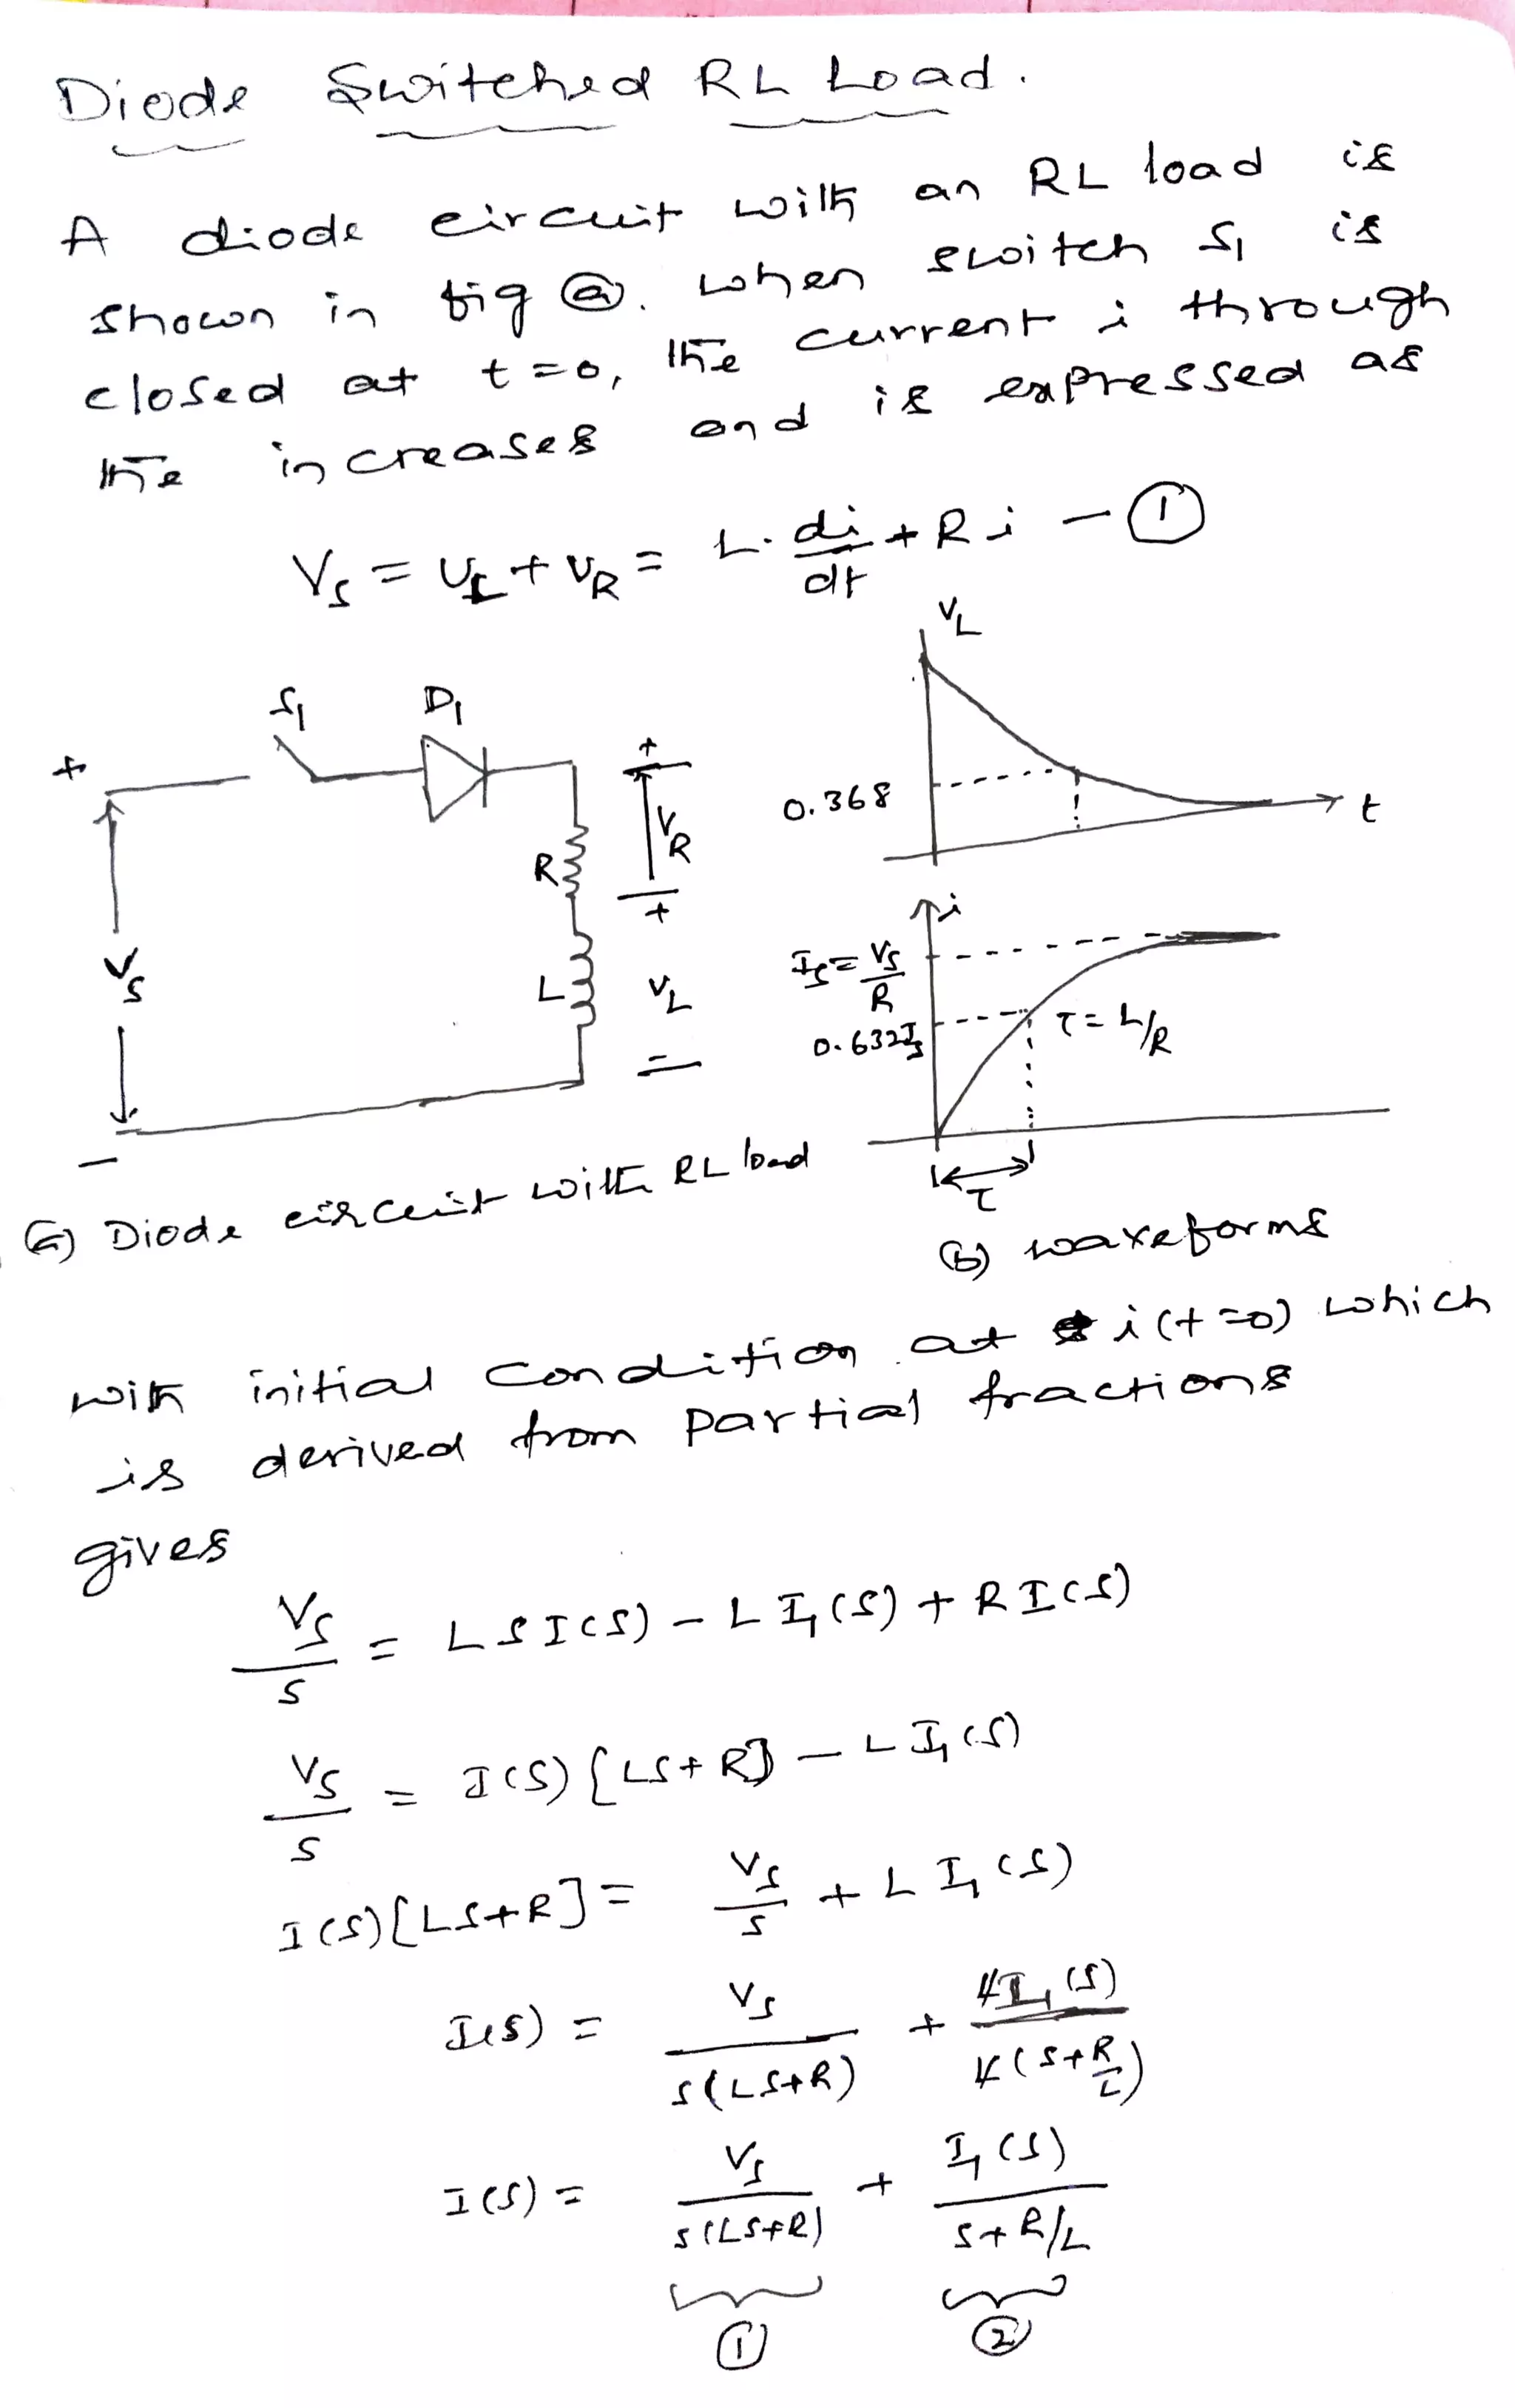 Diode Switched RL Load.
A diode circuit with an RL load is
shown in fig (a). when switch S1 is
closed at t=0, the current i through
the increases and is expressed as
Vs = VL + VR = L. di/dt + Ri - (1)
VL
S1 D1
+ +
VR
0.368 t
R
+
i
Vs Is = Vs/R
L VL
0.632Is τ = L/R
-
τ
(a) Diode circuit with RL load
(b) waveforms
with initial condition at i(t=0) which
is derived from partial fractions
gives
Vs/s = LSI(S) - LI1(S) + RI(S)
Vs/s = I(S) [LS+R] - LI1(S)
I(S)[LS+R] = Vs/s + LI1(S)
I(S) = Vs/s(LS+R) + LI1(S)/L(S+R/L)
I(S) = Vs/s(LS+R) + I1(S)/S+R/L
(1) (2)